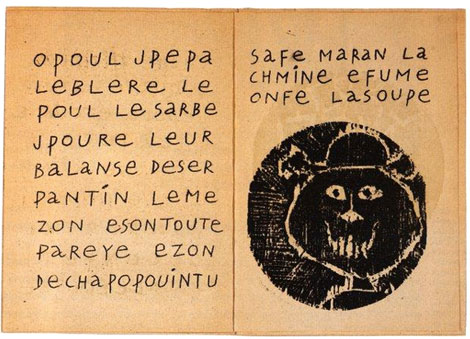 OPOUL JPEPA
LEBLERE LE
POUL LESARBE
JPOURE LEUR
BALANSE DESER
PANTIN LEME
ZON ESONTOUTE
PAREYE EZON
DECHAPOPOUINTU
SAFE MARAN LA
CHMINE EFUME
ONFE LASOUPE